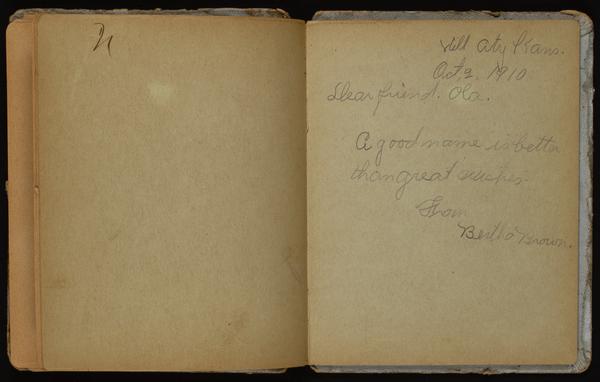 Aty Kans.
Oct, 2, 1910
Dear friend. Ola.
A good name is better
than great riches.
From
Bertha Brown.